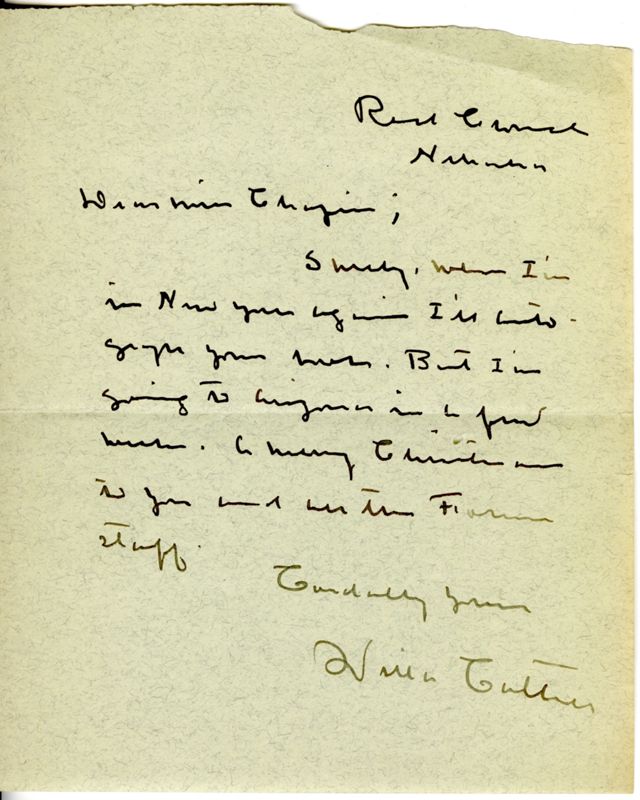 Red Cloud
Nebraska
Dear Miss Chapin;
Surely, when I'm
in New York again I'll auto-
graph your books. But I'm
going to Arizona in a few
weeks. A merry Christmas
to you and all the Forum
staff.
Cordially yours
Willa Cather